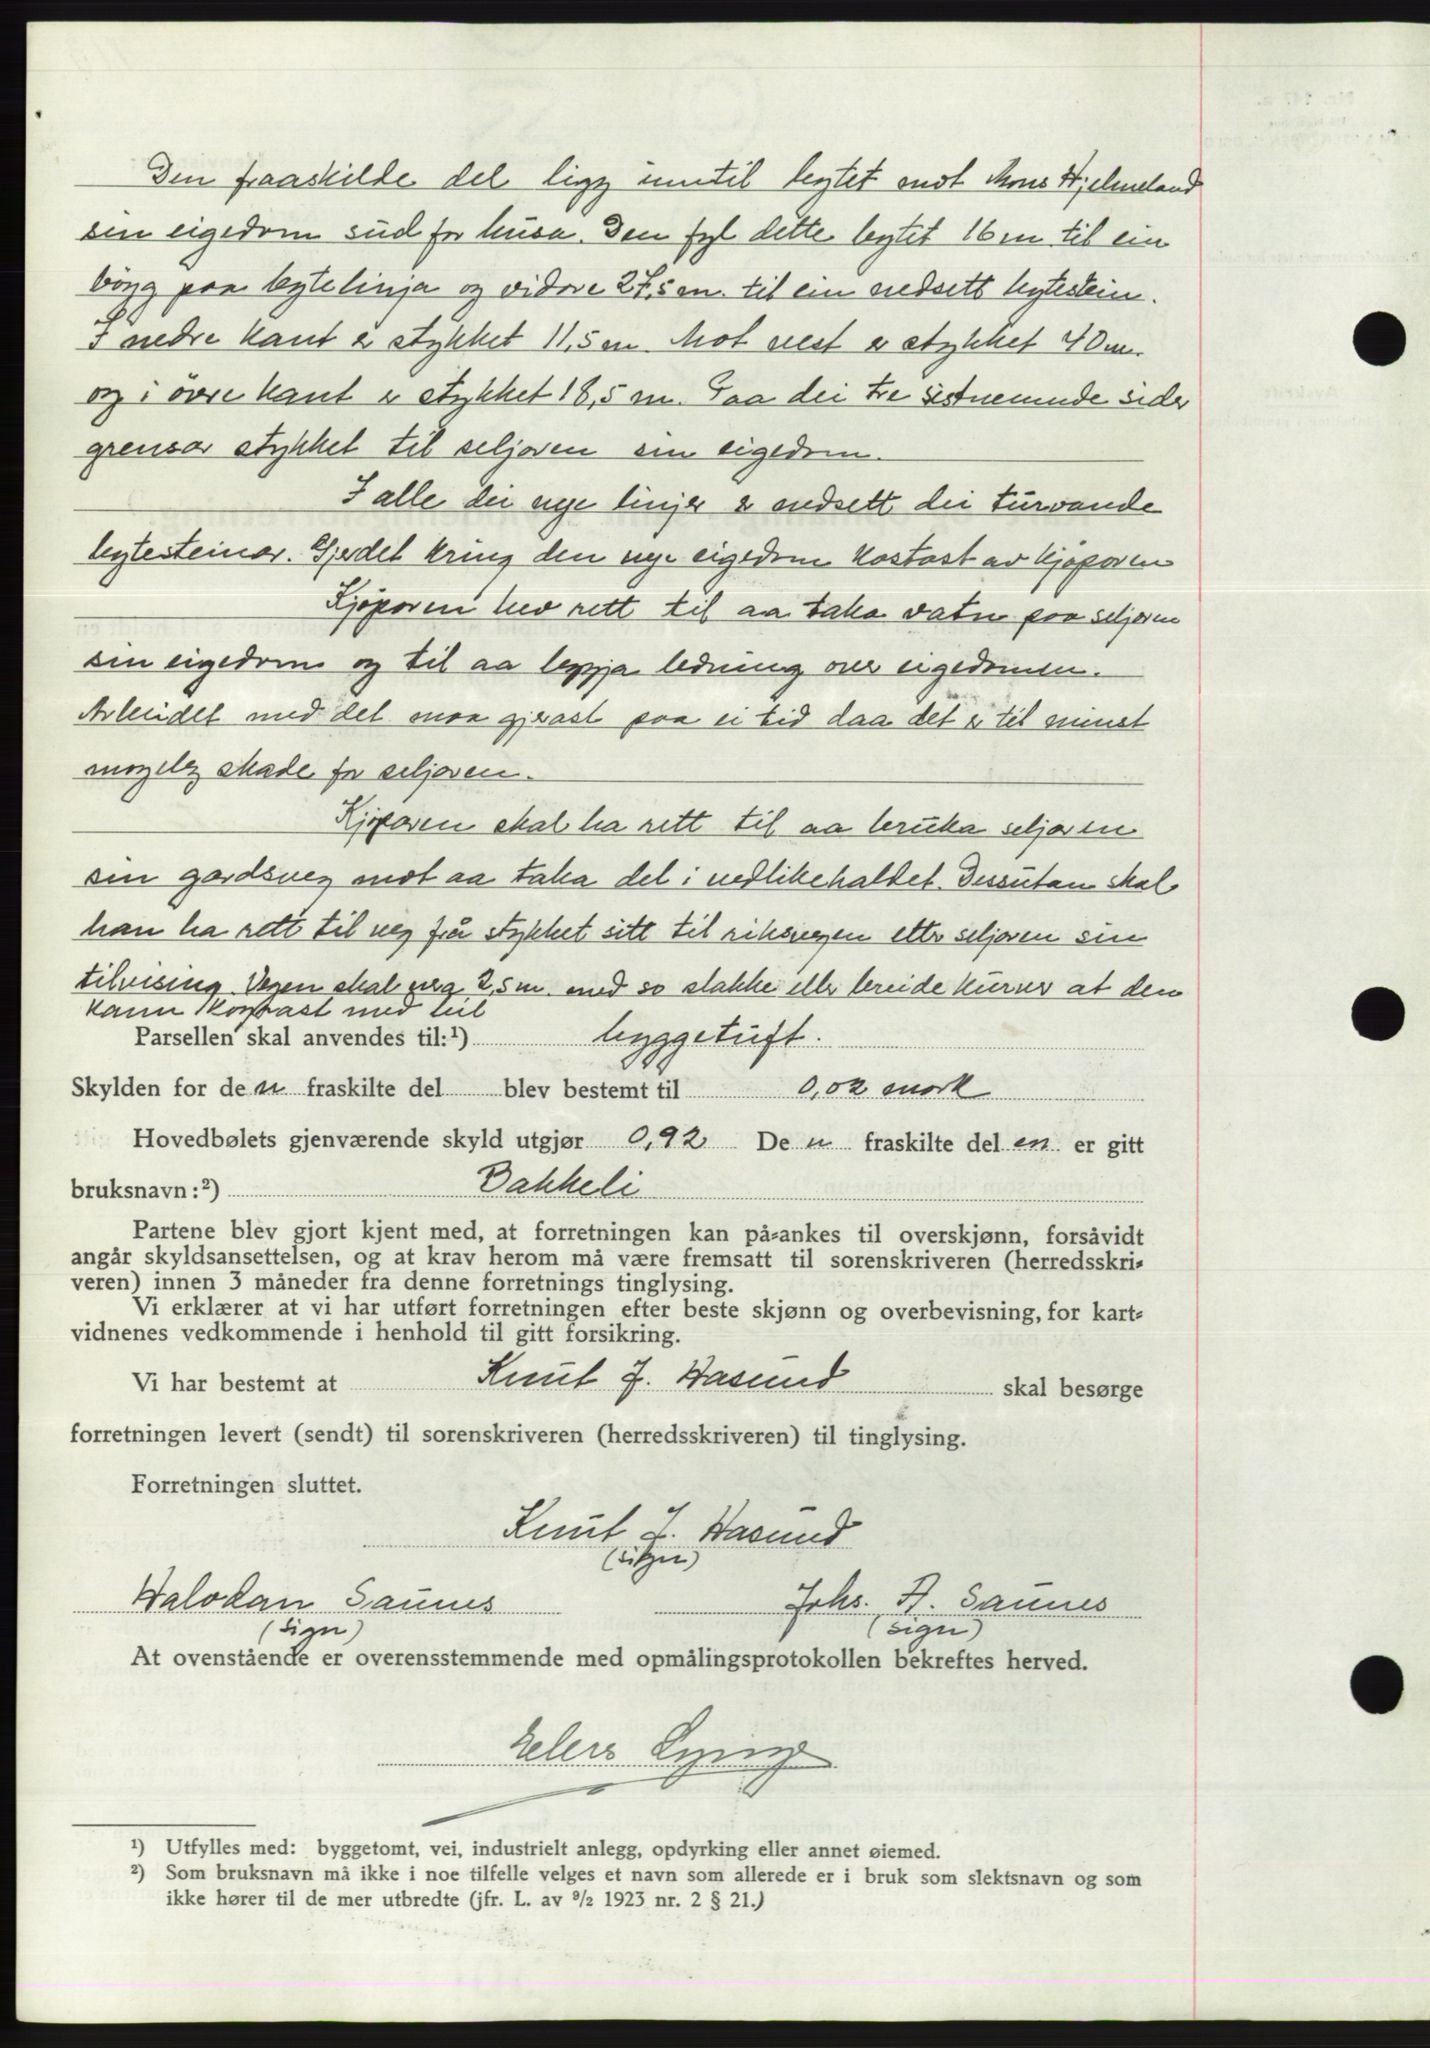 Den fraaskilde del ligg inntil bytet mot Mons Hjelmeland
sin eigedom sud for husa. Den fyl dette bytet 16 m til ein
böyg paa bytelinja og vidare 27,5 m. til ein nedsett bytestein.
I nedre kant er stykket 11,5 m. Mot vest er stykket 40 m.
og i övre kant er stykket 18,5 m. Paa dei tre sistnemnde sider
grensar stykket til seljaren sin eigedom.
I alle dei nye linjer er nedsett dei turvande
bytesteinar. Gjerdet kring den nye eigedom kostast av kjöparen
Kjöparen hev rett til aa taka vatn paa seljaren
sin eigedom og til aa leggja ledning over eigedomen.
Arbeidet med det maa gjerast paa ei tid daa det er til minst
mogeleg skade for seljaren.
Kjöparen skal ha rett til aa bruka seljaren
sin gardsveg mot aa taka del i vedlikehaldet. Dessutan skal
han ha rett til veg frå stykket sitt til riksvegen etter seljaren sin
tilvising. Vegen skal vera 2,5 m. med so slakke eller breide kurver at den
kann köyrast med bil
Parsellen skal anvendes til:¹) byggetuft.
Skylden for de n fraskilte del blev bestemt til 0,02 mark
Hovedbølets gjenværende skyld utgjør 0,92 De n fraskilte del en er gitt
bruksnavn:²) Bakkeli
Partene blev gjort kjent med, at forretningen kan på-ankes til overskjønn, forsåvidt
angår skyldsansettelsen, og at krav herom må være fremsatt til sorenskriveren (herredsskri-
veren) innen 3 måneder fra denne forretnings tinglysing.
Vi erklærer at vi har utført forretningen efter beste skjønn og overbevisning, for kart-
vidnenes vedkommende i henhold til gitt forsikring.
Vi har bestemt at Knut J. Hasund skal besørge
forretningen levert (sendt) til sorenskriveren (herredsskriveren) til tinglysing.
Forretningen sluttet.
Knut J. Hasund
(sign)
Halvdan Saunes Johs. A. Saunes
(sign) (sign)
At ovenstående er overensstemmende med opmålingsprotokollen bekreftes herved.
¹) Utfylles med: byggetomt, vei, industrielt anlegg, opdyrking eller annet øiemed.
²) Som bruksnavn må ikke i noe tilfelle velges et navn som allerede er i bruk som slektsnavn og som
ikke hører til de mer utbredte (jfr. L. av ⁹/₂ 1923 nr. 2 § 21.)